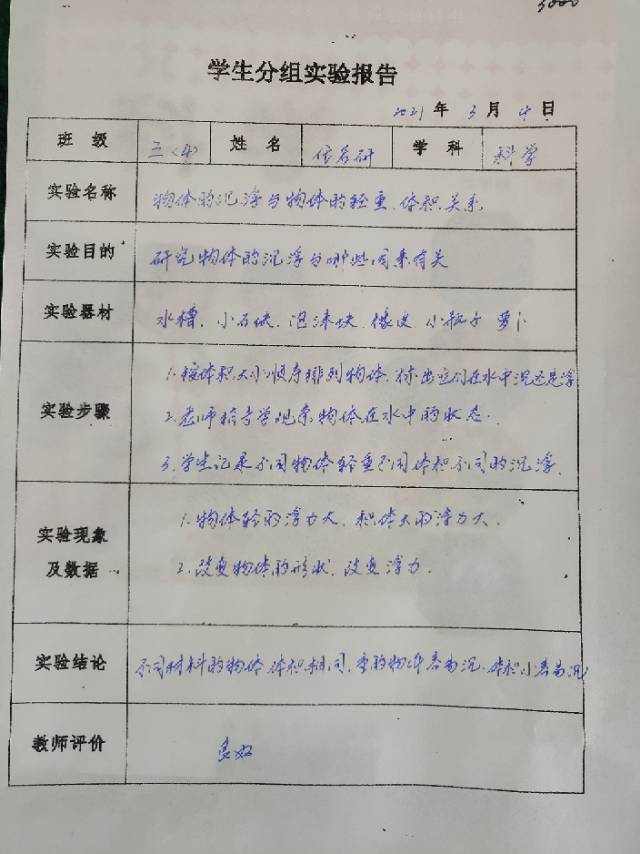 学生分组实验报告
2021 年 3 月 4 日
班级 五(4) 姓名 任名研 学科 科学
实验名称 物体的沉浮与物体的轻重、体积关系
实验目的 研究物体的沉浮与哪些因素有关
实验器材 水槽、小石块、泡沫块、橡皮、小瓶子 萝卜
1、按体积大小顺序排列物体、标出它们在水中沉还是浮
实验步骤 2、老师指导学观察物体在水中的状态.
3、学生记录不同物体轻重不同体积不同的沉浮.
1、物体轻的浮力大、积体大的浮力大.
实验现象
及数据 2、改变物体的形状、改变浮力.
实验结论 不同材料的物体体积相同、重的物体容易沉、体积小容易沉
教师评价 良好